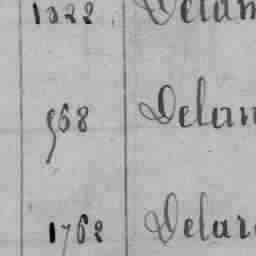 1022 Delam
568 Delan
1762 Delar